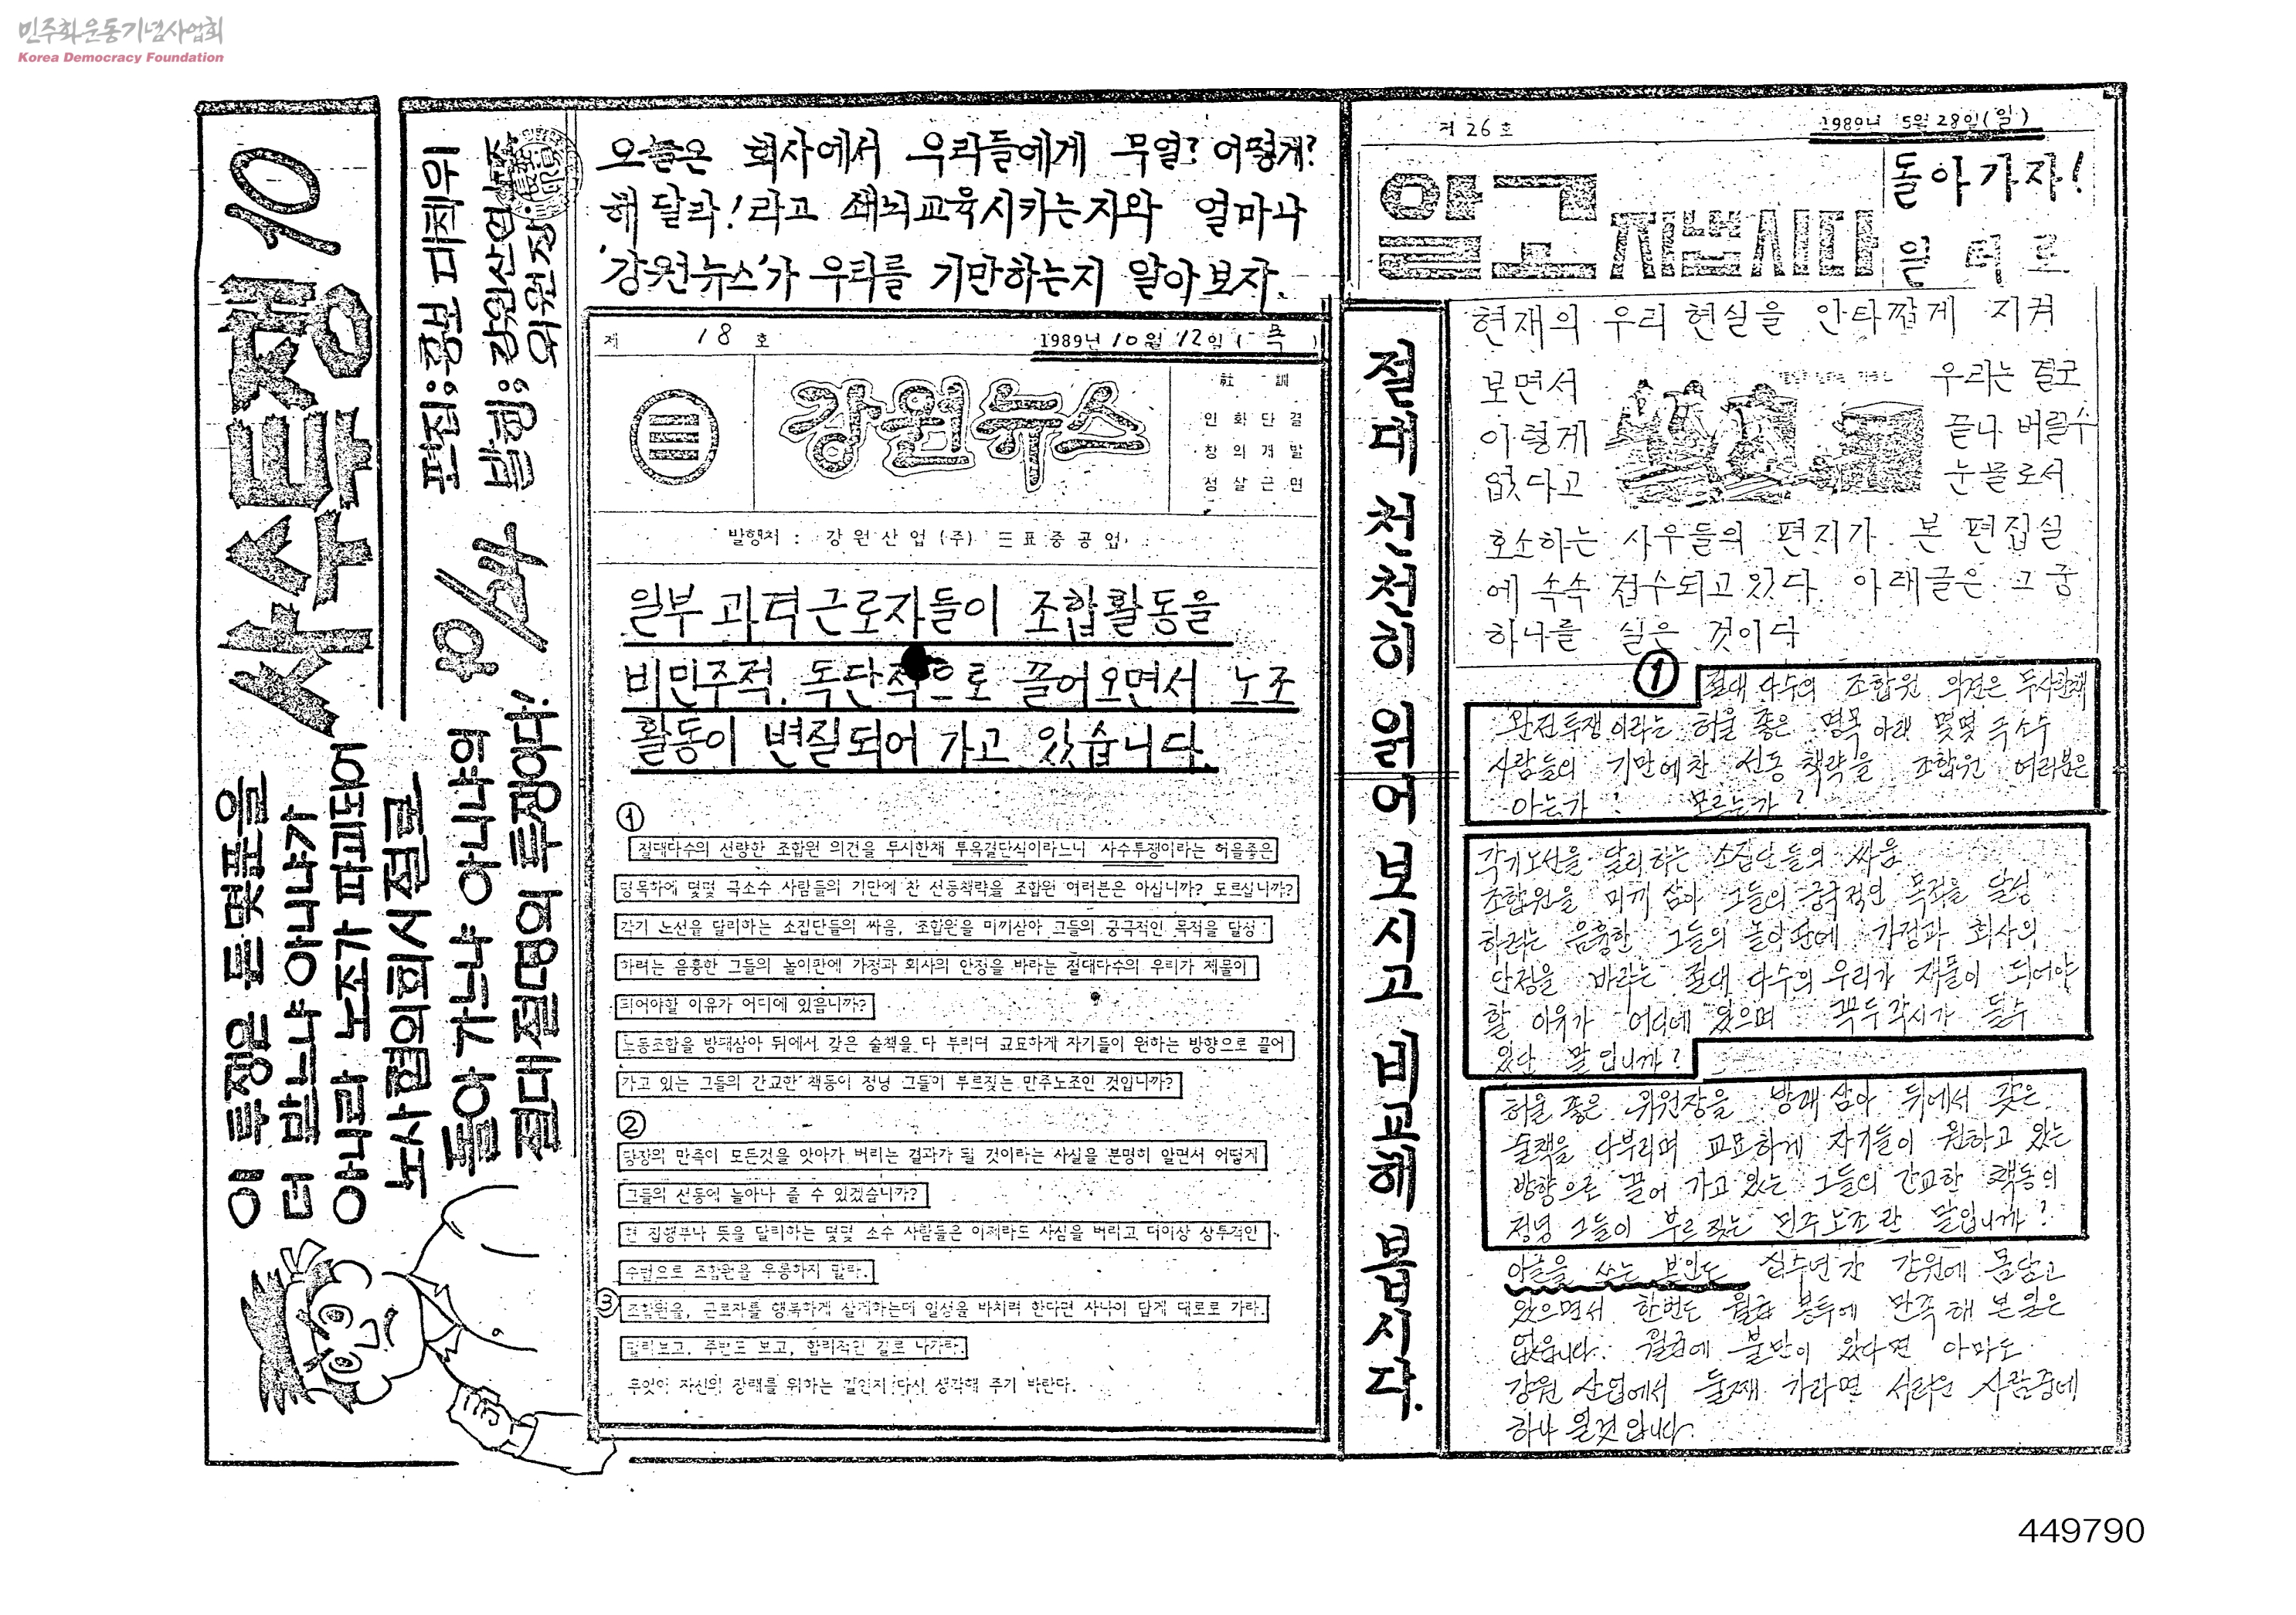 민주화운동기념사업회
Korea Democracy Foundation
사수투쟁 10
편집; 홍보 대책위
발행; 강원산업노조
위원장
10/24
이 투쟁은 돈 몇푼을
더 받느냐 아니냐가
아니라 노조가 파괴되어
노사협의회 시절로
돌아 가느냐 아니냐의
절대절명의 투쟁이다!
오늘은 회사에서 우리들에게 무얼? 어떻게?
해달라! 라고 세뇌교육시키는지와 얼마나
'강원뉴스'가 우리를 기만하는지 알아보자.
제 18 호 1989년 10월 12일 ( 목 )
강원뉴스
社訓
인화단결
창의개발
성실근면
발행처 : 강원산업(주) 三표중공업
일부 과격근로자들이 조합활동을
비민주적, 독단적으로 끌어오면서 노조
활동이 변질되어 가고 있습니다.
①
절대다수의 선량한 조합원 의견을 무시한채 투옥결단식이라느니 사수투쟁이라는 허울좋은
명목하에 몇몇 극소수 사람들의 기만에 찬 선동책략을 조합원 여러분은 아십니까? 모르십니까?
각기 노선을 달리하는 소집단들의 싸움, 조합원을 미끼삼아 그들의 궁극적인 목적을 달성
하려는 음흉한 그들의 놀이판에 가정과 회사의 안정을 바라는 절대다수의 우리가 제물이
되어야할 이유가 어디에 있읍니까?
노동조합을 방패삼아 뒤에서 갖은 술책을 다 부리며 교묘하게 자기들이 원하는 방향으로 끌어
가고 있는 그들의 간교한 책동이 정녕 그들이 부르짖는 민주노조인 것입니까?
②
당장의 만족이 모든것을 앗아가 버리는 결과가 될 것이라는 사실을 분명히 알면서 어떻게
그들의 선동에 놀아나 줄 수 있겠습니까?
현 집행부나 뜻을 달리하는 몇몇 소수 사람들은 이제라도 사심을 버리고 더이상 상투적인
수법으로 조합원을 우롱하지 말라.
③ 조합원을, 근로자를 행복하게 살게하는데 일생을 바치려 한다면 사나이 답게 대로로 가라.
멀리보고, 주변도 보고, 합리적인 길로 나가라.
무엇이 자신의 장래를 위하는 길인지 다시 생각해 주기 바란다.
절대 천천히 읽어보시고 비교해 봅시다.
제 26 호 1989년 5월 28일(일)
알고 지냅시다
돌아가자!
일터로
현재의 우리 현실을 안타깝게 지켜
보면서 우리는 결코
이렇게 끝나 버릴수
없다고 눈물로서
호소하는 사우들의 편지가 본 편집실
에 속속 접수되고있다. 아래글은 그 중
하나를 실은 것이다
① 절대 다수의 조합원 의견은 무시한채
완전투쟁이라는 허울 좋은 명목 아래 몇몇 극소수
사람들의 기만에찬 선동 책략을 조합원 여러분은
아는가? 모르는가?
각기노선을 달리하는 소집단들의 싸움
조합원을 미끼 삼아 그들의 궁극적인 목적을 달성
하려는 음흉한 그들의 놀이판에 가정과 회사의
안정을 바라는 절대 다수의 우리가 제물이 되어야
할 이유가 어디에 있으며 꼭두각시가 될수
있단 말입니까?
허울 좋은 위원장을 방패삼아 뒤에서 갖은
술책을 다부리며 교묘하게 자기들이 원하고 있는
방향으로 끌어 가고있는 그들의 간교한 책동이
정녕 그들이 부르짖는 민주노조란 말입니까?
이글을 쓰는 본인도 십수년간 강원에 몸담고
있으면서 한번도 월급 봉투에 만족해 본일은
없습니다. 월급에 불만이 있다면 아마도
강원 산업에서 둘째 가라면 서러운 사람중에
하나 일것입니다.
449790